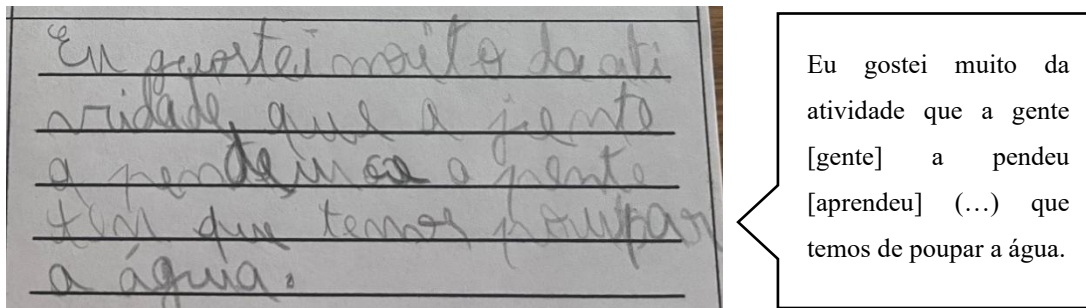 Eu guostei moito da ati
vidade que a jente
a pendeu a jente
tem que temos poupar
a água.
Eu gostei muito da
atividade que a gente
[gente] a pendeu
[aprendeu] (…) que
temos de poupar a água.